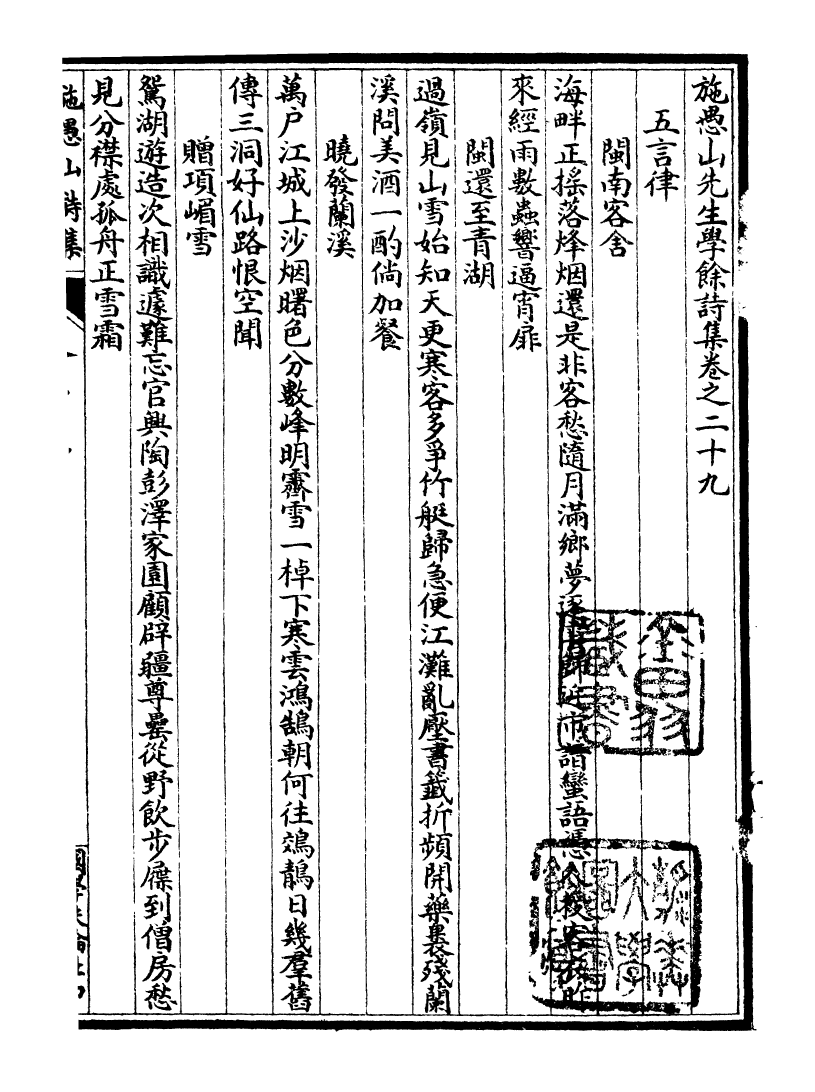 施愚山先生學餘詩集卷之二十九
五言律
閩南客舍
海畔正揺落烽烟還是非客愁隨月滿鄉夢逐歸近市諳蠻語憑人授客衣昨
來經雨數蟲響逼宵扉
閩還至青湖
過嶺見山雪始知天更寒客多爭竹艇歸急便江灘亂壓書籤折頻開藥裹殘蘭
溪問美酒一酌倘加餐
曉發蘭溪
萬户江城上沙烟曙色分數峰明霽雪一棹下寒雲鴻鵠朝何往鵁鶄日幾羣舊
傳三洞好仙路恨空聞
贈項嵋雪
鴛湖遊造次相識遽難忘官興陶彭澤家園顧辟疆尊罍從野飲步屧到僧房愁
見分襟處孤舟正雪霜
施愚山詩集